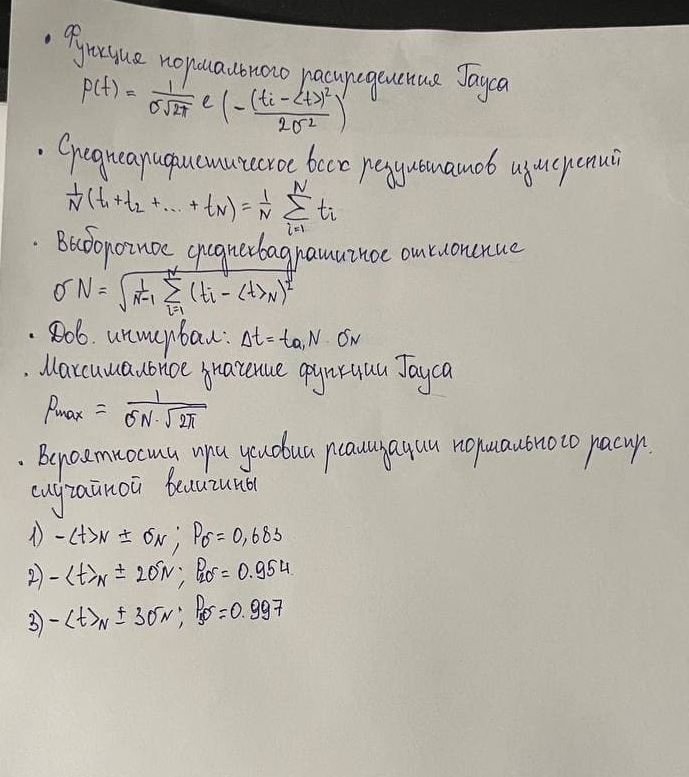 • Функция нормального распределения Гауса
p(t) = 1/(σ√2π) e (-(ti - <t>)²/2σ²)
• Среднеарифметическое всех результатов измерений
1/N (t₁ + t₂ + ... + tN) = 1/N Σ_{i=1}^{N} ti
• Выборочное среднеквадратичное отклонение
σN = √(1/(N-1) Σ_{i=1}^{N} (ti - <t>N)²)
• Дов. интервал: Δt = ta,N · σN
• Максимальное значение функции Гауса
ρmax = 1/(σN · √2π)
• Вероятности при условии реализации нормального распр.
случайной величины
1) - <t>N ± σN ; Pσ = 0,683
2) - <t>N ± 2σN ; P2σ = 0.954
3) - <t>N ± 3σN ; P3σ = 0.997